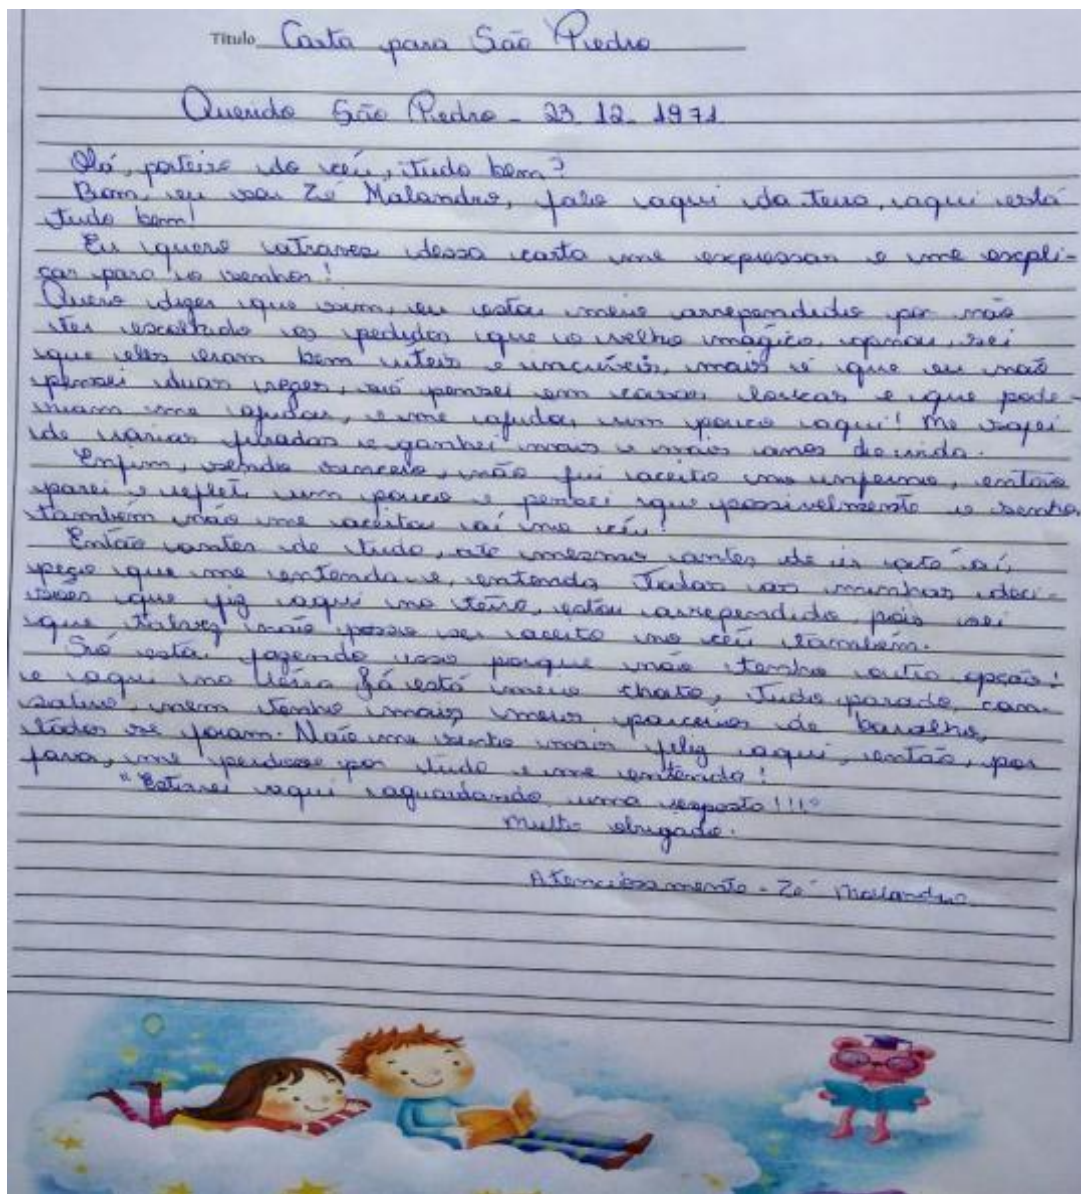 Título Carta para São Piedro
Querido São Piedro - 23.12.1971
Olá, porteiro do céu, tudo bem?
Bom, eu sou Zé Malandro, falo aqui da terra, aqui está
tudo bem!
Eu quero atraves dessa carta me expressar e me expli-
car para o senhor!
Quero dizer que sim, eu estou meio arrependido por não
ter escolhido os pedidos que o velho mágico, opinou, sei
que eles eram bem uteis e incríveis, mais é que eu não
pensei duas vezes, só pensei em coisas loucas e que pode-
riam me ajudar, e me ajuda, um pouco aqui! Me safei
de várias furadas e ganhei mais e mais anos de vida.
Enfim, sendo sincero, não fui aceito no inferno, então
parei e refleti um pouco e pensei que possivelmente o senhor
também não me aceitou aí no céu!
Então antes de tudo, até mesmo antes de ir até aí,
peço que me entenda e, entenda todas as minhas deci-
sões que fiz aqui na terra, estou arrependido, pois sei
que talvez não posso ser aceito no céu também.
Só estou fazendo isso porque não tenho outra opção!
e aqui na terra já está meio chato, tudo parado, can-
sativo, nem tenho mais meus parceiros de baralho,
todos se foram. Não me sinto mais feliz aqui, então, por
favor, me perdoe por tudo e me entenda!
"Estarei aqui aguardando uma resposta!!!"
Muito obrigado.
Atenciosamente - Zé Malandro